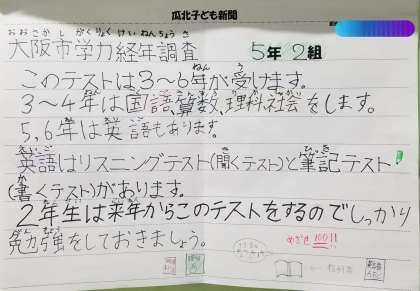 瓜北子ども新聞
おおさかしがくりょくけいねんちょうさ
大阪市学力経年調査
5年 2組
このテストは3~6年が受けます。
3~4年は国語、算数、理科、社会をします。
5,6年は英語もあります。
英語はリスニングテスト(聞くテスト)と筆記テスト
(書くテスト)があります。
2年生は来年からこのテストをするのでしっかり
勉強をしておきましょう。
めざせ100!!